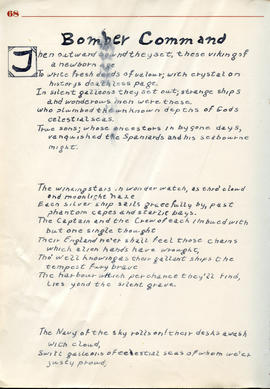 68
Bomber Command
Then outward bound they set, these viking of
a newborn age
To write fresh deeds of valour; with crystal on
history's deathless page.
In silent galleons they set out; strange ships
and wonderous men were these.
who plumbed the unknown depths of Gods
celestial seas.
True sons; whose ancestors in bygone days,
vanquished the Spaniards and his seabourne
might.
The winking stars in wonder watch, as third cloud
and moonlight haze
Each silver ship sails gracefully by, past
phantom capes and eerlie bays.
The Captain and the Crew of each imbued with
but one single thought
Their England ne'er shall feel those chains
which alien hands have wrought,
Tho' well knowing as their gallant ships the
tempest fury brave
The harbour which perchance they'll find,
Lies yond the silent grave.
The Navy of the sky rolls on! their desks awash
with cloud,
Swift galleons of celestial seas of whom we're
justly proud,